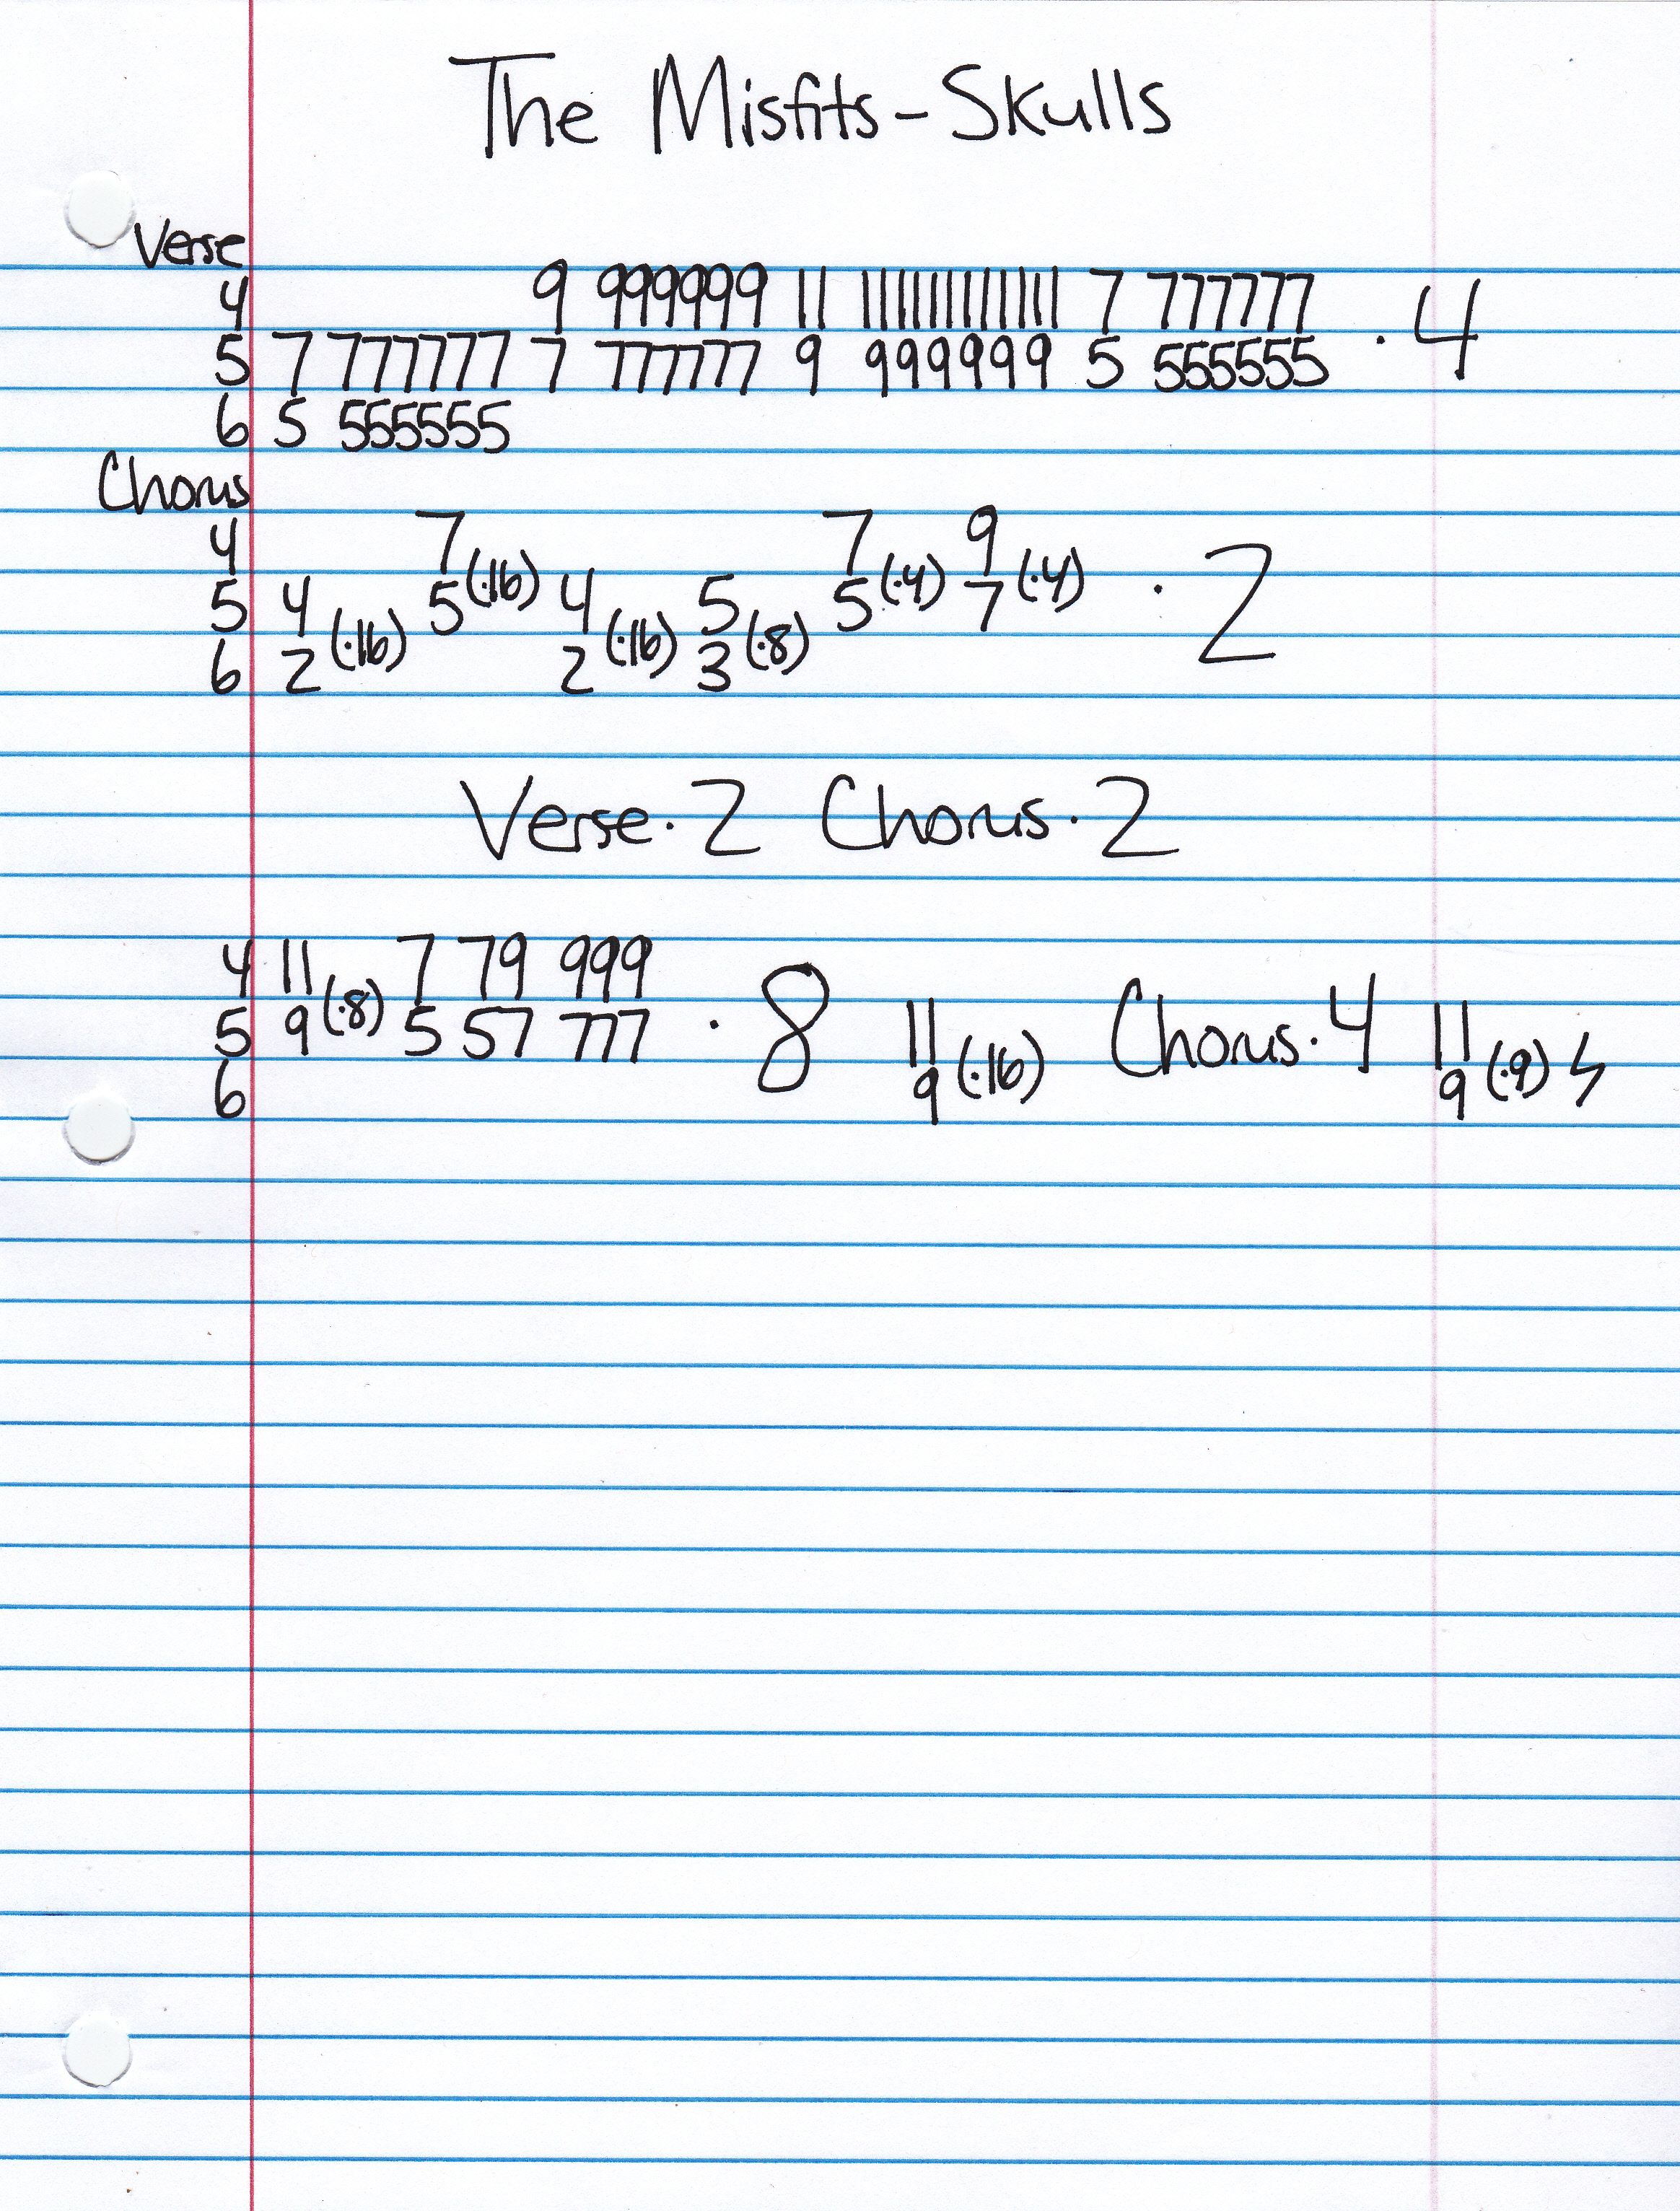 The Misfits - Skulls
Verse
4 9 999999 11 111111111111 7 777777
5 7 777777 7 777777 9 999999 5 555555 · 4
6 5 555555
Chorus
4 7 7 9
5 4 5 (·16) 4 5 5 (·4) 7 (·4) · 2
6 2 (·16) 2 (·16) 3 (·8)
Verse · 2 Chorus · 2
4 11 7 79 999
5 9 (·8) 5 57 777 · 8 11 9 (·16) Chorus · 4 11 9 (·9) ϟ
6